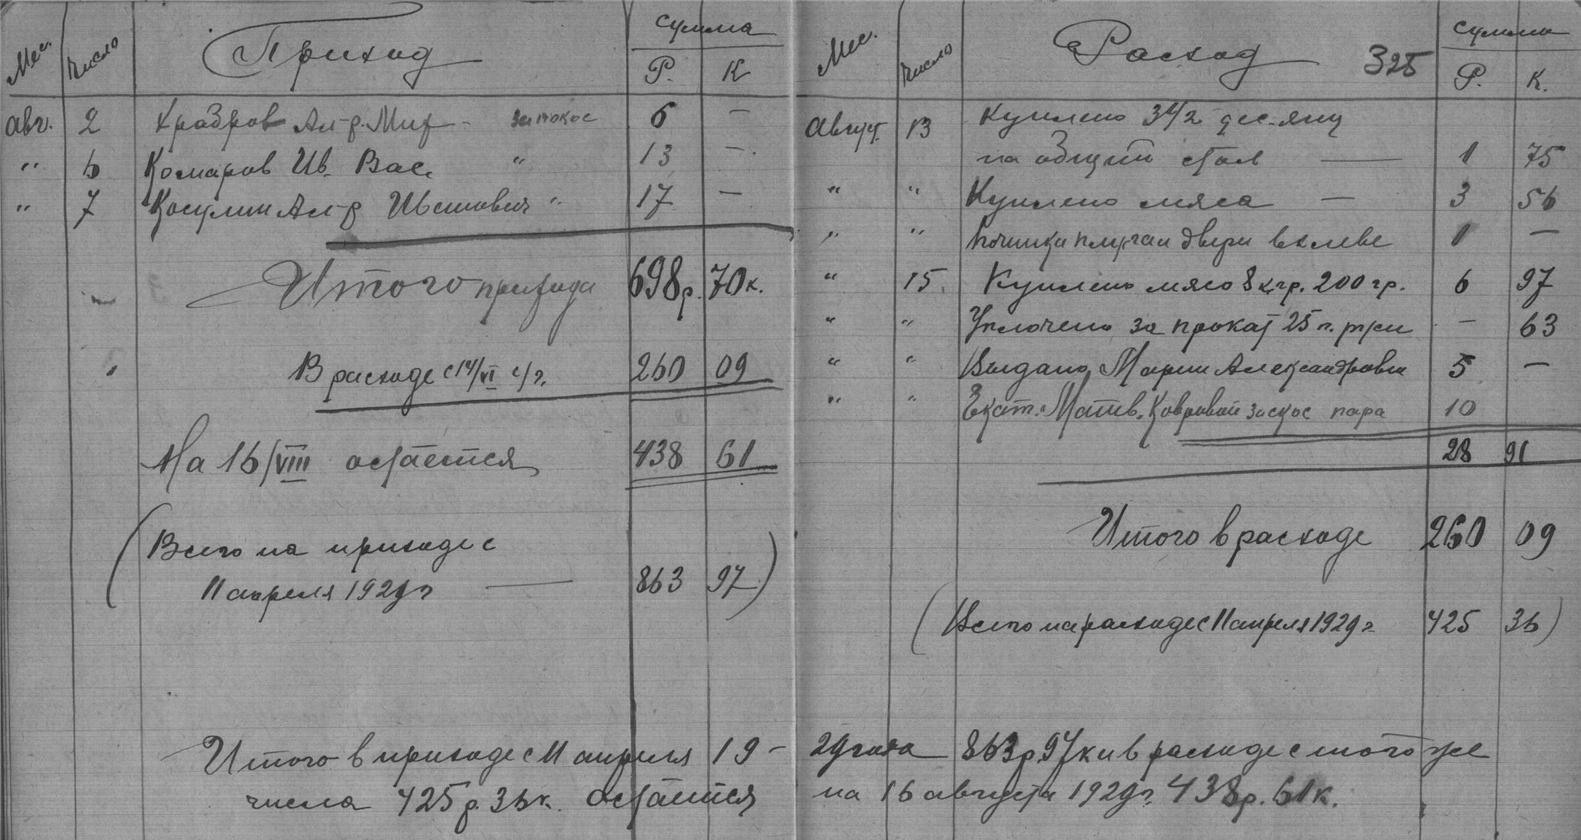 Мес. Число Приход сумма
Р. К
авг. 2 Храбров Ал-р. Мих- за покос 6 —
" 6 Комаров Ив. Вас. " 13 —
" 7 Косулин Ал-р " 17 —
Итого прихода 698р. 70к.
В расходе с 14/VI с/г. 260 09
На 16/VIII остается 438 61
(Всего на приходе с
11 апреля 1929г — 863 97)
Мес. Число Расход 325 сумма
Р. К.
Август 13 Куплено 3 1/2 дес. яиц
на общий стол — 1 75
" " Куплено мяса — 3 56
" " Починка двери в хлеве 1 —
" 15. Куплено мясо 8 кгр. 200 гр. 6 97
" " Уплочено за прокат 25 п. ржи — 63
" " Выдано Марии Александровне 5 —
" " Екат. Матв. Ковровой за скос пара 10
28 91
Итого в расходе 260 09
(Всего на расходе с 11 апреля 1929г 425 36)
Итого в приходе с 11 апреля 19- 29 года 863р 97к и в расходе с того же
числа 425р. 36к. остается на 16 августа 1929г. 438р. 61к.